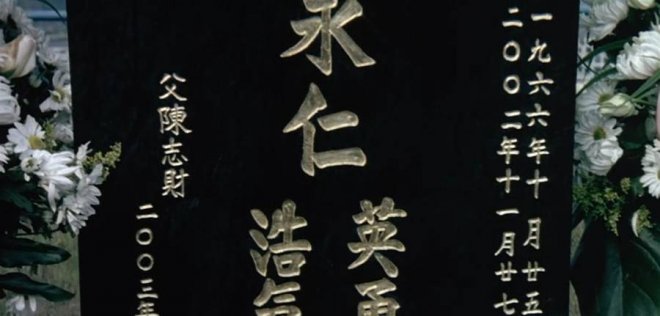 一九六六年十月廿五
二〇〇二年十一月廿七
永仁
英勇
浩氣
父陳志財
二〇〇三年